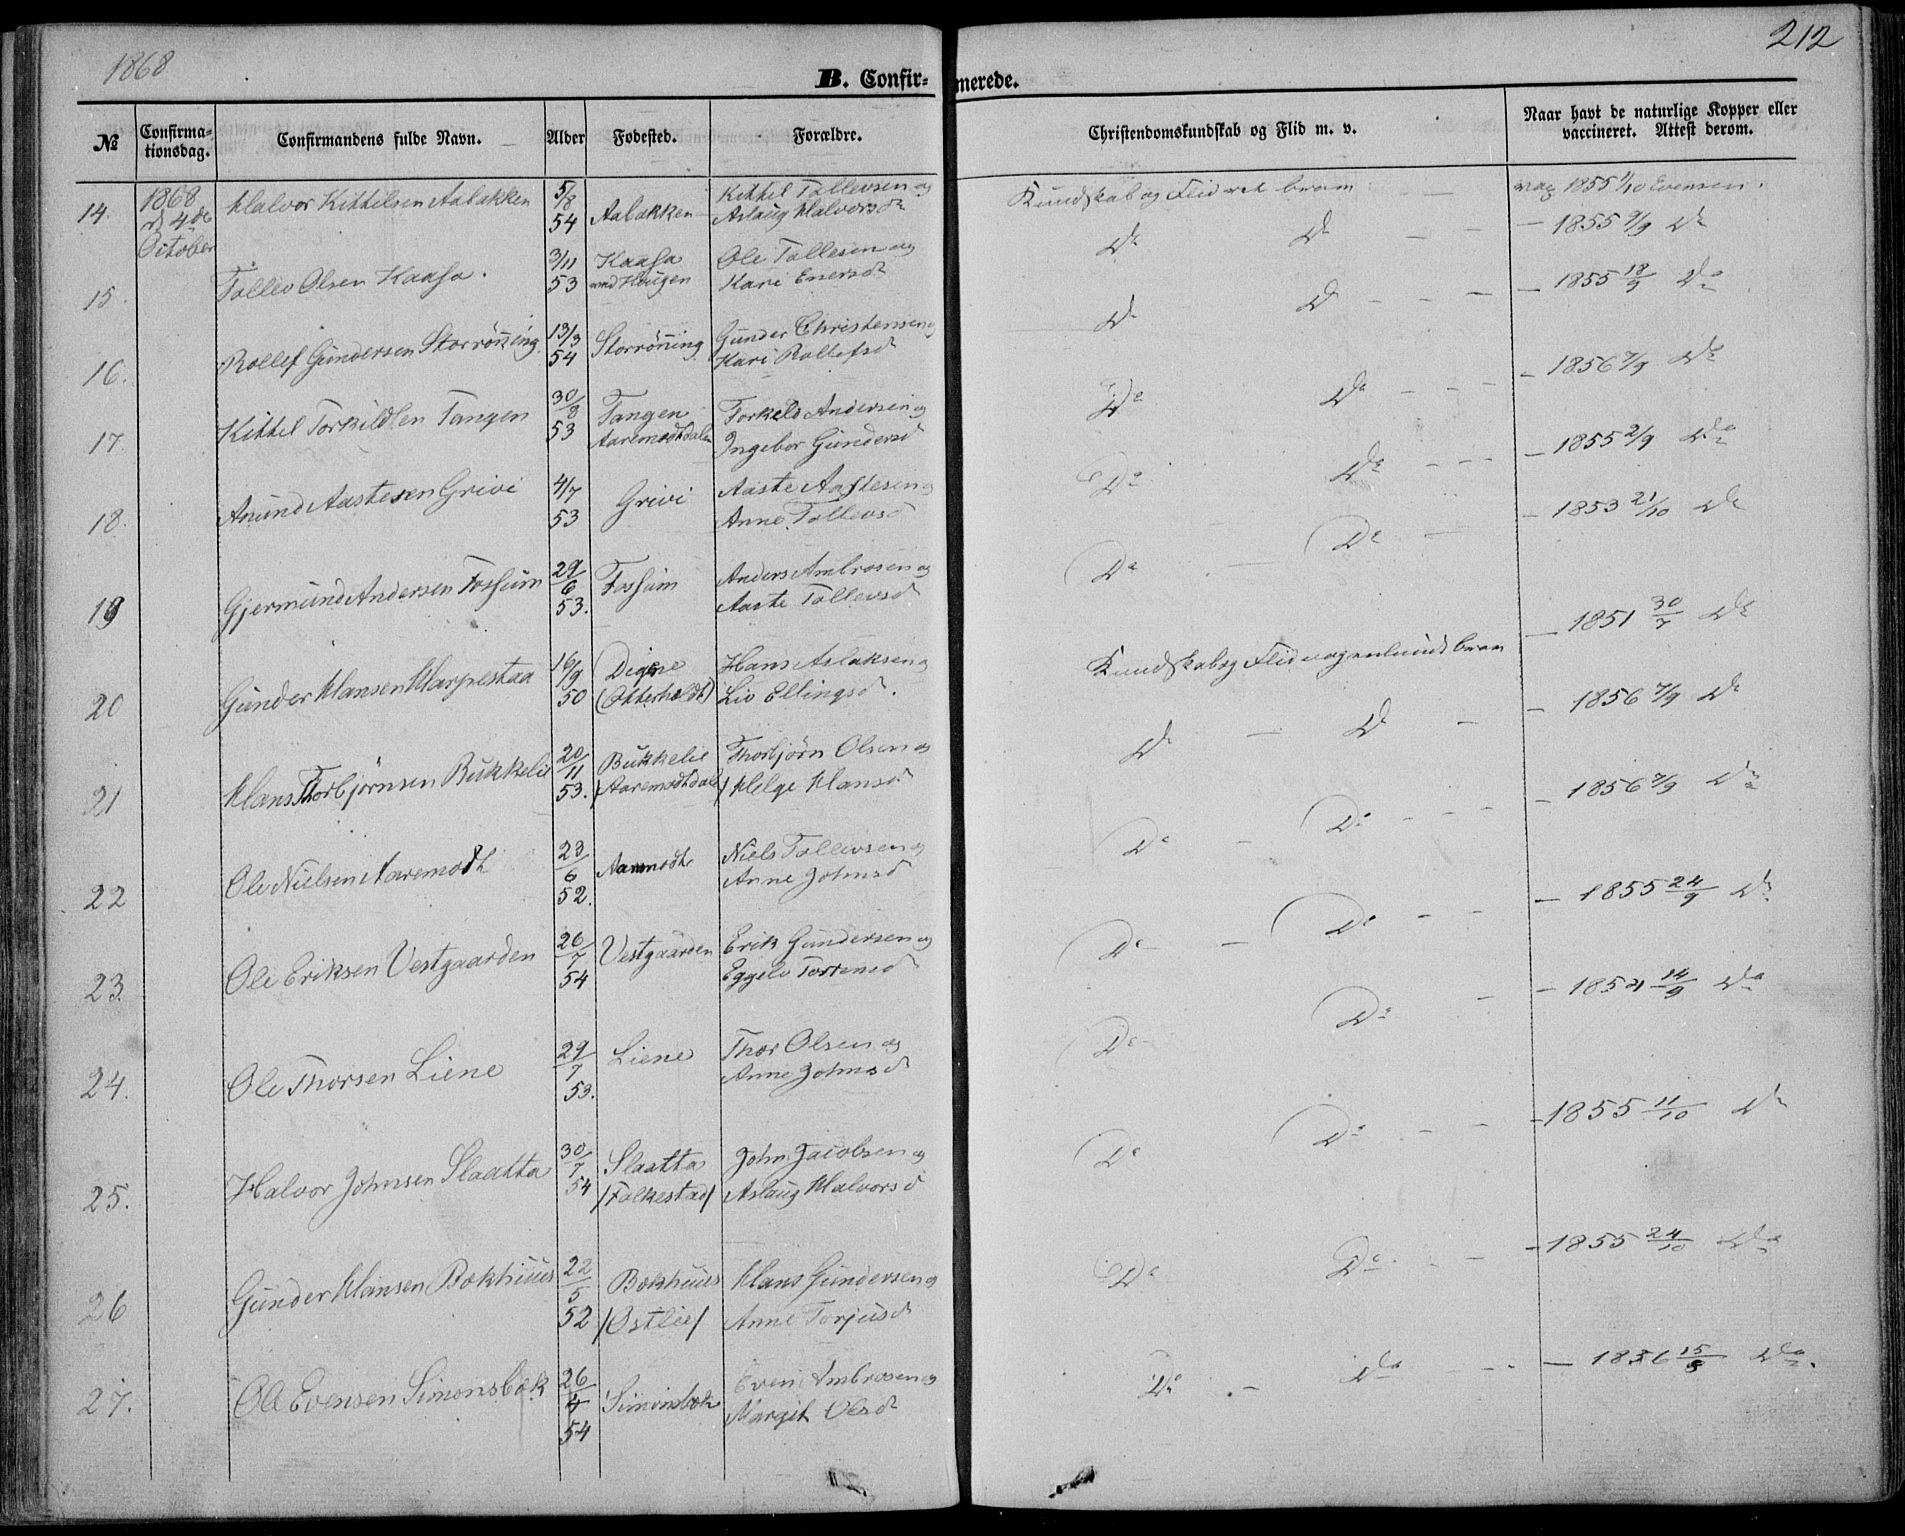 1868
212
B. Confir- merede.
№ Confirma-tionsdag. Confirmandens fulde Navn. Alder Fødested. Forældre. Christendomskundskab og Flid m. v. Naar havt de naturlige Kopper eller vaccineret. Attest derom.
14. 1868 d 4de October Halvor Kittilsen Aabakken 5/8 54 Aabakken Kittil Tollevsen og Aslaug Halvorsd Kundskab og Flid ret bram vac 1855 1/10 Evensen.
15. Tollev Olsen Kaasa. 3/11 53 Kaasa Ole Tollesen og Kari Enersd Do Do — — — 1855 9/9 Do
16. Rollef Gundersen Storrøning 13/3 54 Storrøning Gunder Christensen og Kari Rollefsd Do Do - - — — 1855 18/9 Do
17. Kittel Torkildsen Tangen 30/8 53 Tangen Aaremodtdalen Torkeld Andersen og Ingebor Gundersd Do Do - - - — 1856 7/9 Do
18. Anund Aastesen Grivi 4/7 53 Grivi Aaste Aastesen og Anne Tollevsd Do Do - - - — 1855 2/9 Do
19 Gjermund Andersen Fossum 29/6 53. Fossum Anders Ambrosen og Aaste Tollevsd Do — Do — — 1853 21/10 Do
20 Gunder Hansen Harpestaa 16/9 50 (Otterholdt) Hans Aslaksen og Liv Ellingsd. Kundskab og Flid bram — 1851 30/7 Do
21 Hans Thorbjørnsen Bukkelie 20/11 53. Bukkelie /Aaremodtdale/ Thorbjørn Olsen og Helge Hansd Do — Do — — 1856 7/9 Do
22 Ole Nielsen Aaremodt 23/6 52. Aaremodt Niels Tollevsen og Anne Johnsd Do - Do - - - — 1856 7/9 Do
23. Ole Eriksen Vestgaarden 26/7 54 Vestgaarden Erik Gundersen og Eggelv Do — — Do - - — 1855 24/9 Do
24. Ole Thorsen Liene 29/7 53. Liene Thor Olsen og Anne Johnsd Do — Do — — 14/9 Do
25. Halvor Johnsen Slaatta 30/7 54 Slaatta /Folkestad/ John Jacobsen og Aslaug Halvorsd Do Do. - - - 1855 11/10 Do
26 Gunder Hansen Bokhuus 22/5 52 Bokhuus /Østlie/ Hans Gundersen og Anne Torjusd Do Do. — - 1855 24/10 Do
27. Ole Evensen Simonsbæk 26/4 54 Simonsbæk Even Ambrosen og Margit Olsd Do . — Do — - - — 1856 15/8 Do.